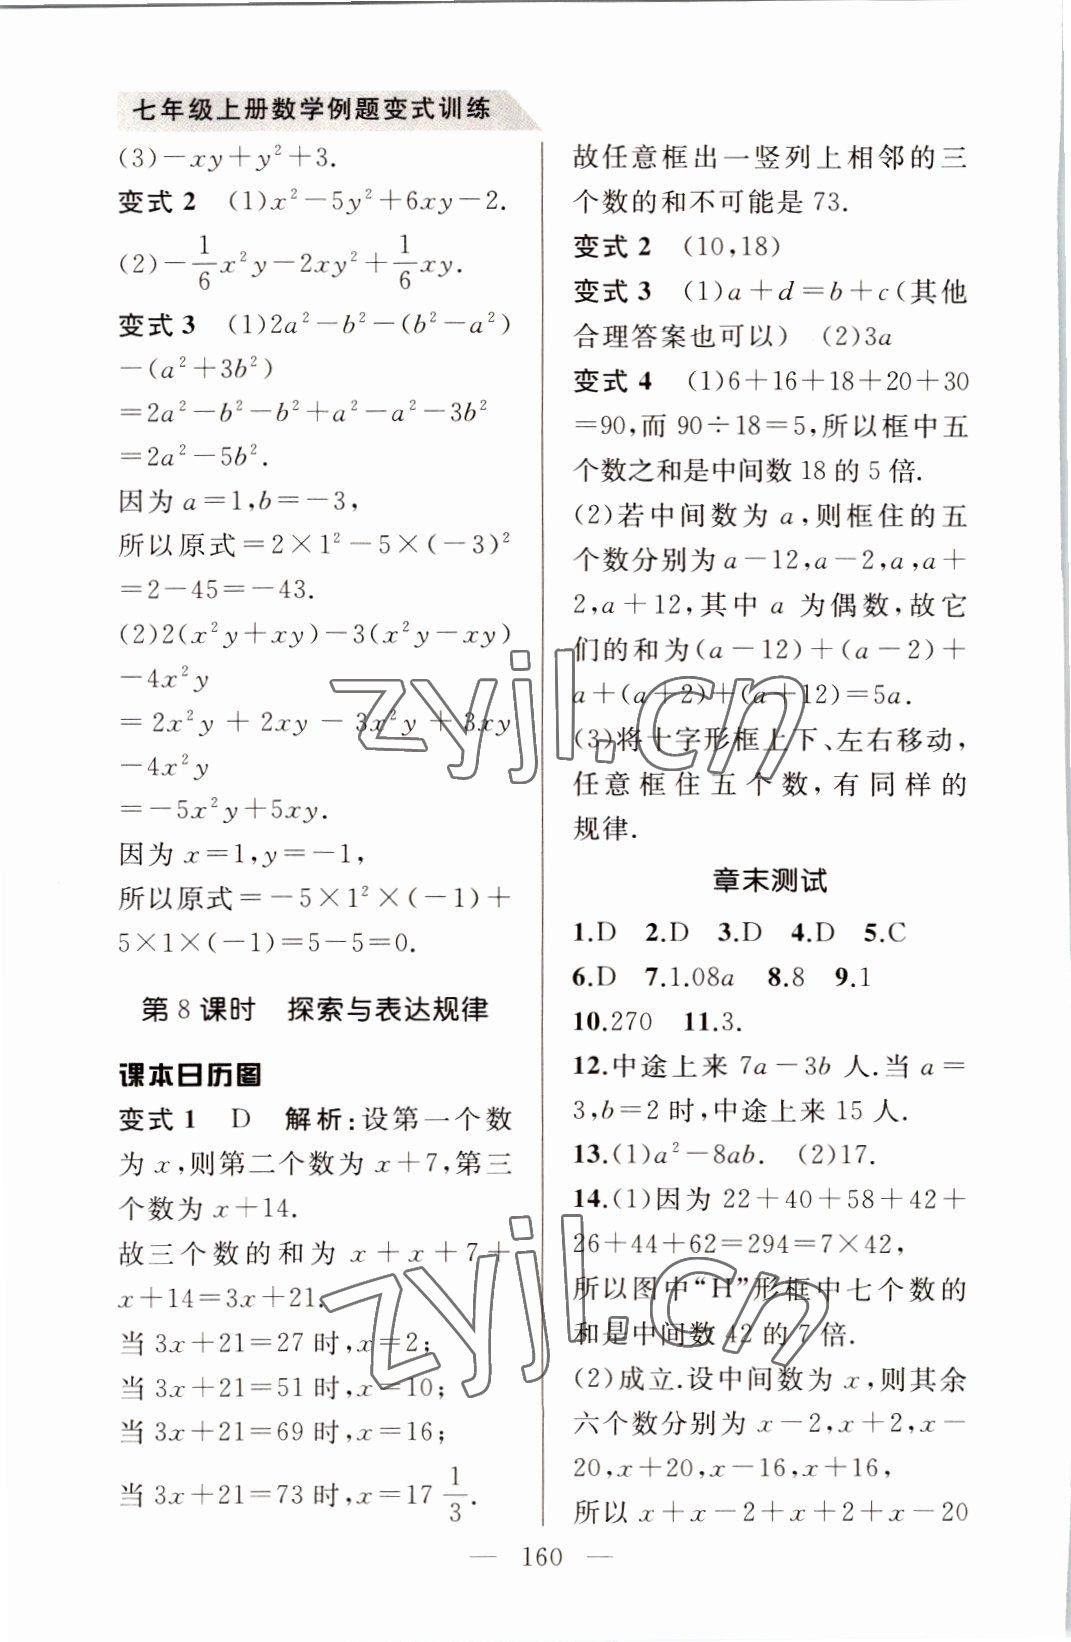 七年级上册数学例题变式训练
(3)－xy＋y²＋3.
变式 2　(1)x²－5y²＋6xy－2.
(2)－1/6x²y－2xy²＋1/6xy.
变式 3　(1)2a²－b²－(b²－a²)
－(a²＋3b²)
＝2a²－b²－b²＋a²－a²－3b²
＝2a²－5b².
因为 a＝1,b＝－3,
所以原式＝2×1²－5×(－3)²
＝2－45＝－43.
(2)2(x²y＋xy)－3(x²y－xy)
－4x²y
＝2x²y＋2xy－3x²y＋3xy
－4x²y
＝－5x²y＋5xy.
因为 x＝1,y＝－1,
所以原式＝－5×1²×(－1)＋
5×1×(－1)＝5－5＝0.
第 8 课时　探索与表达规律
课本日历图
变式 1　D　解析:设第一个数
为 x,则第二个数为 x＋7,第三
个数为 x＋14.
故三个数的和为 x＋x＋7＋
x＋14＝3x＋21.
当 3x＋21＝27 时,x＝2;
当 3x＋21＝51 时,x＝10;
当 3x＋21＝69 时,x＝16;
当 3x＋21＝73 时,x＝17 1/3.
故任意框出一竖列上相邻的三
个数的和不可能是 73.
变式 2　(10,18)
变式 3　(1)a＋d＝b＋c(其他
合理答案也可以)　(2)3a
变式 4　(1)6＋16＋18＋20＋30
＝90,而 90÷18＝5,所以框中五
个数之和是中间数 18 的 5 倍.
(2)若中间数为 a,则框住的五
个数分别为 a－12,a－2,a,a＋
2,a＋12,其中 a 为偶数,故它
们的和为(a－12)＋(a－2)＋
a＋(a＋2)＋(a＋12)＝5a.
(3)将十字形框上下、左右移动,
任意框住五个数,有同样的
规律.
章末测试
1.D　2.D　3.D　4.D　5.C
6.D　7.1.08a　8.8　9.1
10.270　11.3.
12.中途上来 7a－3b 人.当 a＝
3,b＝2 时,中途上来 15 人.
13.(1)a²－8ab.　(2)17.
14.(1)因为 22＋40＋58＋42＋
26＋44＋62＝294＝7×42,
所以图中“H”形框中七个数的
和是中间数 42 的 7 倍.
(2)成立.设中间数为 x,则其余
六个数分别为 x－2,x＋2,x－
20,x＋20,x－16,x＋16,
所以 x＋x－2＋x＋2＋x－20
— 160 —
zyjl.cn
zyjl.cn